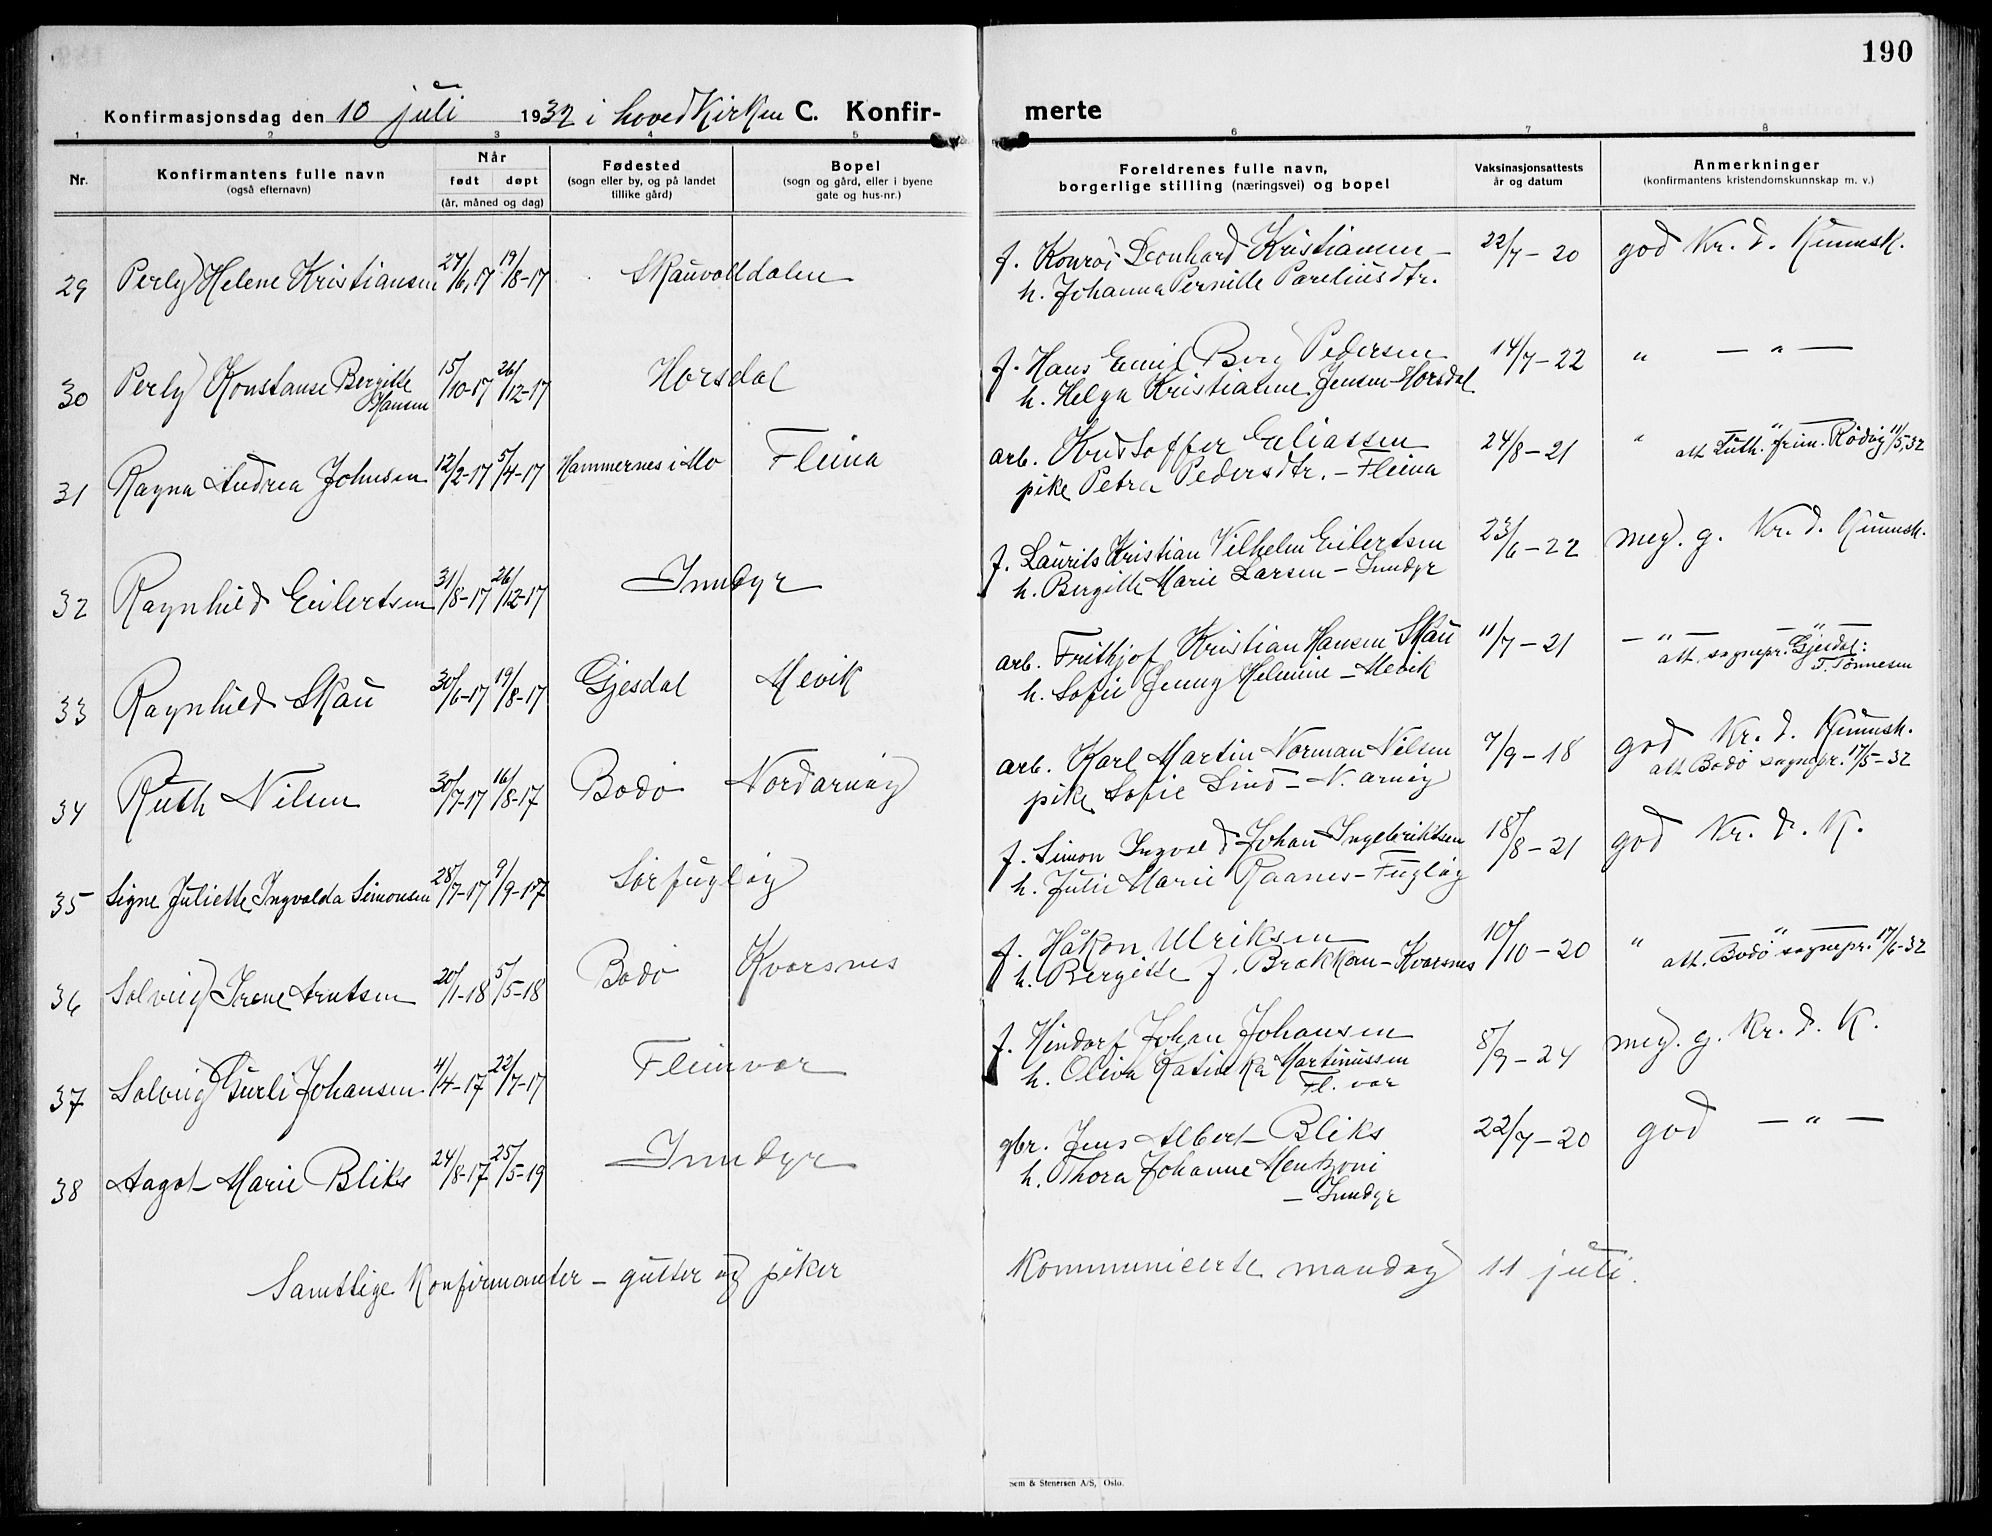 190
Konfirmasjonsdag den 10 juli 1932 i hovedkirken C. Konfir- merte
1 2 3 4 5 6 7 8
Nr. Konfirmantens fulle navn (også efternavn) Når født døpt (år, måned og dag) Fødested (sogn eller by, og på landet tillike gård) Bopel (sogn og gård, eller i byene gate og hus-nr.) Foreldrenes fulle navn, borgerlige stilling (næringsvei) og bopel Vaksinasjonsattests år og datum Anmerkninger (konfirmantens kristendomskunnskap m. v.)
29 Perly Helene Kristiansen 27/6,17 19/8-17 Skauvolldalen f. Konrad Leonhard Kristiansen – 22/7-20 god Kr. d. Kunnsk.
h. Johanna Pernille Pareliusdtr.
30 Perly Konstanse Bergitte Hansen 15/10-17 26/12-17 Horsdal f. Hans Emil Berg Pedersen 14/7-22 " — " —
h. Helga Kristianne Jensen-Horsdal
31 Ragna Andrea Johnsen 12/2-17 5/4-17 Hammernes i Mo Fleina arb. Kristoffer Eliassen 24/8-21 " — " —
pike Petra Pedersdtr. – Fleina att. Luth. frim. Rödöy 11/5,32
32 Ragnhild Eilertsen 31/8-17 26/12-17 Inndyr f. Laurits Kristian Vilhelm Eilertsen 23/6-22 meg. g. Kr. d. Kunnsk.
h. Bergitte Marie Larsen – Inndyr
33 Ragnhild Skau 30/6-17 19/8-17 Gjesdal Mevik arb. Frithjof Kristian Hansen Skau 11/7-21 — " — — " —
h. Sofie Jenny Helmine – Mevik att. sognepr. Gjesdal: T. Tönnesen
34 Ruth Nilsen 30/7-17 16/8-17 Bodö Nordarnöy arb. Karl Martin Norman Nilsen 7/9-18 god Kr. d. Kunnsk.
pike Sofie Lind – N. arnöy att. Bodö sognepr. 17/5-32
35 Signe Juliette Ingvalda Simonsen 28/7-17 9/9-17 Sörfuglöy f. Simon Ingvald Johan Ingebriktsen 18/8-21 god Kr. d. K.
h. Julie Marie Raanes – Fuglöy
36 Solveig Irene Arntsen 20/1-18 5/5-18 Bodö Kvarsnes f. Håkon Ulriksen 10/10-20 " — " —
h. Bergitte f. Brækkan – Kvarsnes att. Bodö sognepr. 17/6-32
37 Solveig Gurli Johansen 4/4-17 22/7-17 Fleinvær f. Hindorf Johan Johansen 8/9-24 meg. g. Kr. d. K.
h. Oliva Katinka Martinussen
Fl. vær
38 Aagot Marie Bliks 24/8-17 25/5-19 Inndyr gbr. Jens Albert Bliks 22/7-20 god — " —
h. Thora Johanne Mentzoni
– Inndyr
Samtlige konfirmanter – gutter og piker kommunicerte mandag 11 juli.
Sem & Stenersen A/S, Oslo.